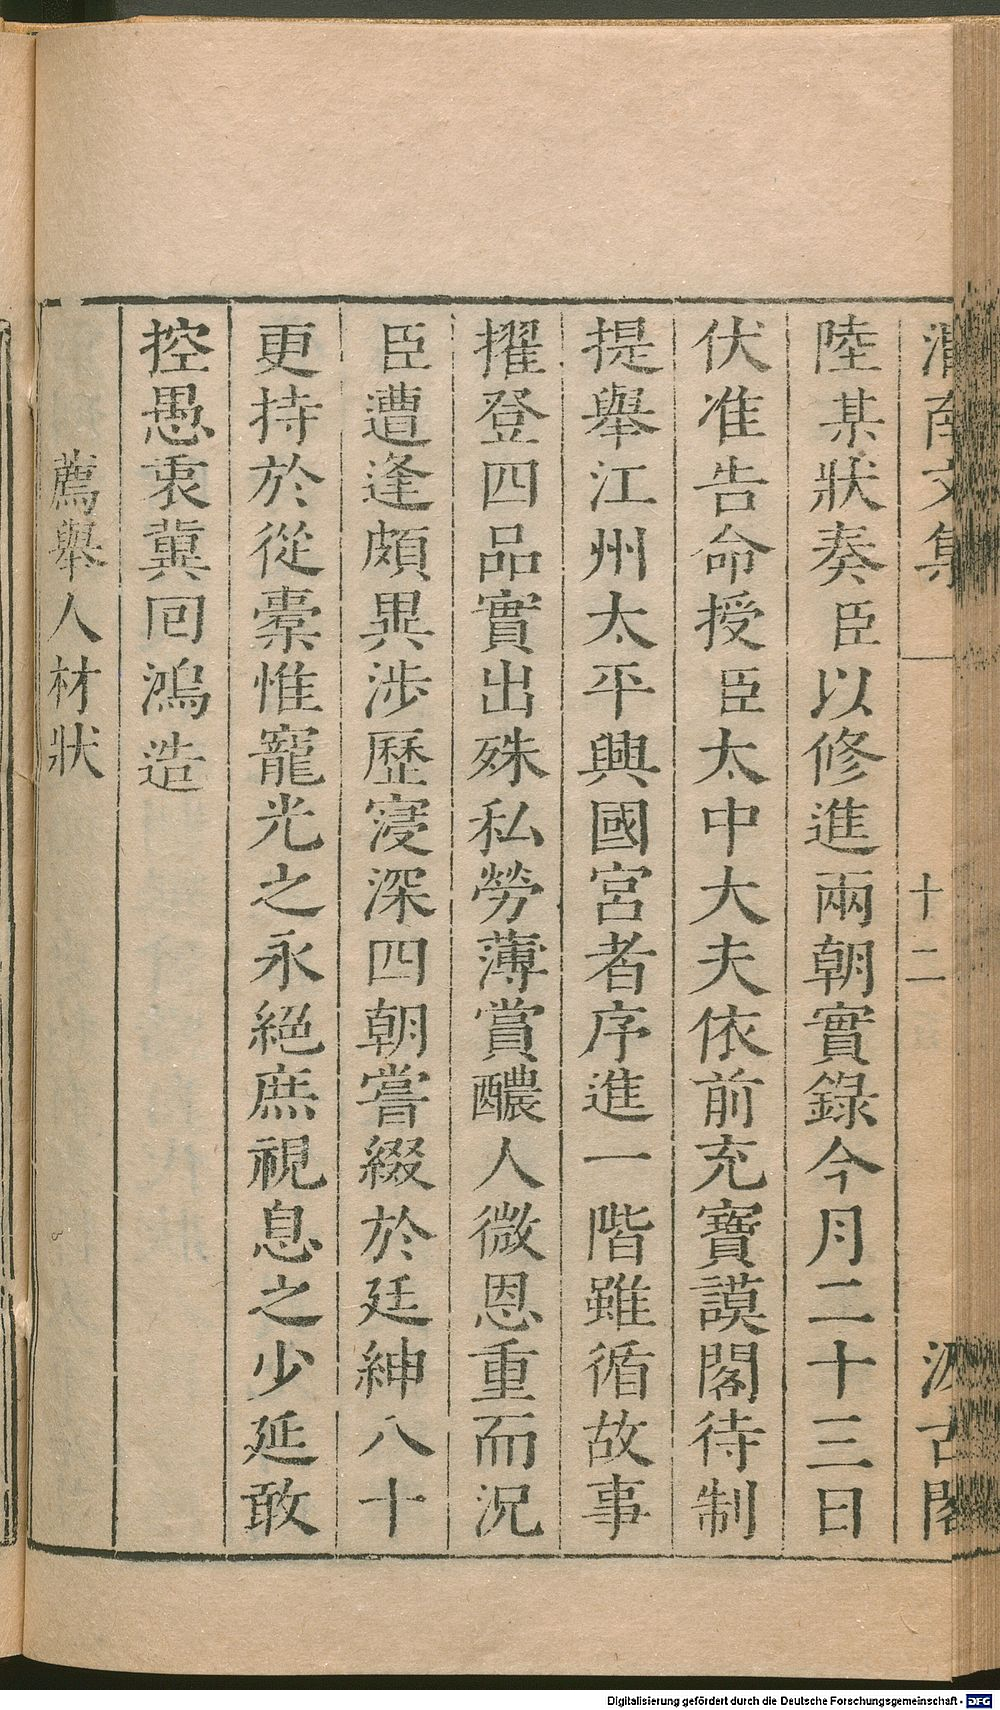 渭南文集 十二 汲古閣
陸某狀奏臣以修進兩朝實錄今月二十三日
伏准告命授臣太中大夫依前充寶謨閣待制
提舉江州太平興國宮者序進一階雖循故事
擢登四品實出殊私勞薄賞醲人微恩重而況
臣遭逢頗異涉歷寖深四朝嘗綴於廷紳八十
更持於從橐惟寵光之永絕庶視息之少延敢
控愚衷冀回鴻造
薦舉人材狀
Digitalisierung gefördert durch die Deutsche Forschungsgemeinschaft - DFG